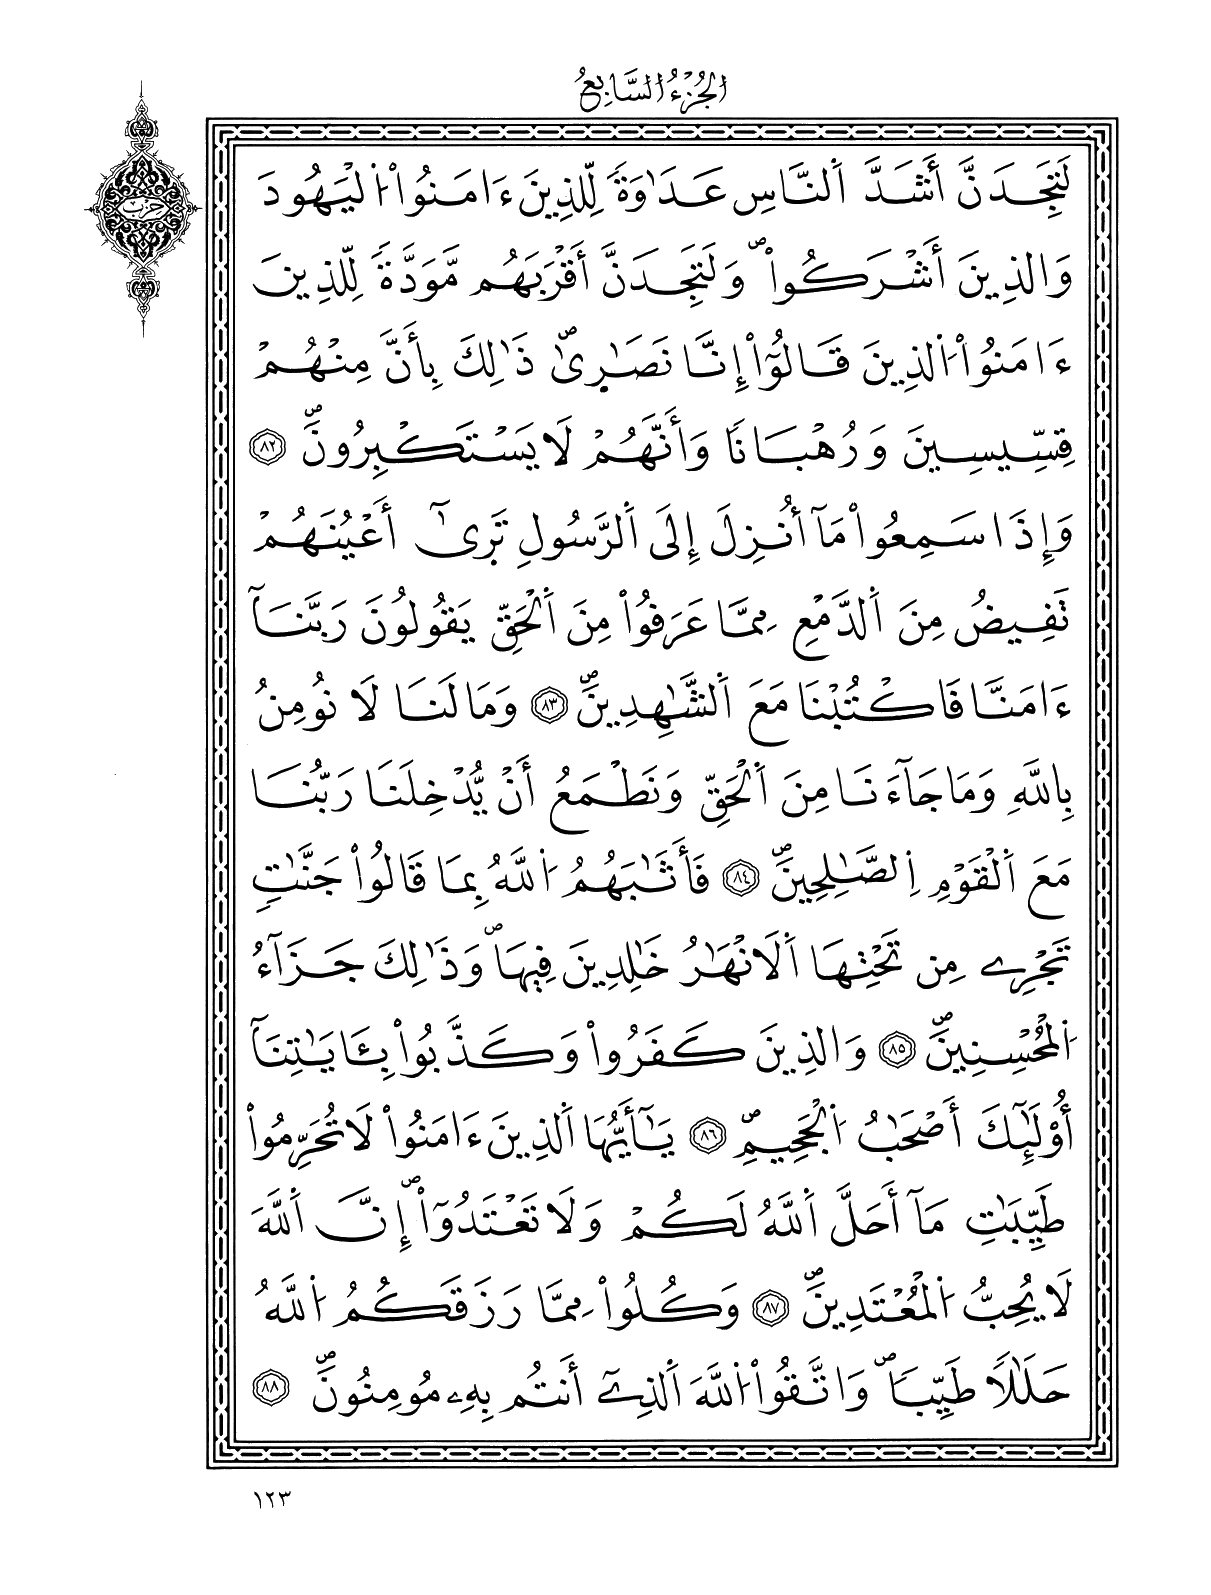 الجُزْءُ السَّابِعُ
حِزْب
لَتَجِدَنَّ أَشَدَّ اَ۬لنَّاسِ عَدَٰوَةٗ لِّلذِينَ ءَامَنُواْ اُ۬لْيَهُودَ
وَالذِينَ أَشْرَكُواْۖ وَلَتَجِدَنَّ أَقْرَبَهُم مَّوَدَّةٗ لِّلذِينَ
ءَامَنُواْ اُ۬لذِينَ قَالُوٓاْ إِنَّا نَصَٰرٜيٰۖ ذَٰلِكَ بِأَنَّ مِنْهُمْ
قِسِّيسِينَ وَرُهْبَاناٗ وَأَنَّهُمْ لَا يَسْتَكْبِرُونَۖ ٨٢
وَإِذَا سَمِعُواْ مَآ أُنزِلَ إِلَى اَ۬لرَّسُولِ تَرٜيٰٓ أَعْيُنَهُمْ
تَفِيضُ مِنَ اَ۬لدَّمْعِ مِمَّا عَرَفُواْ مِنَ اَ۬لْحَقِّ يَقُولُونَ رَبَّنَآ
ءَامَنَّا فَاكْتُبْنَا مَعَ اَ۬لشَّٰهِدِينَۖ ٨٣ وَمَا لَنَا لَا نُومِنُ
بِاللَّهِ وَمَا جَآءَنَا مِنَ اَ۬لْحَقِّ وَنَطْمَعُ أَنْ يُّدْخِلَنَا رَبُّنَا
مَعَ اَ۬لْقَوْمِ اِ۬لصَّٰلِحِينَۖ ٨٤ فَأَثَٰبَهُمُ اُ۬للَّهُ بِمَا قَالُواْ جَنَّٰتٖ
تَجْرِے مِن تَحْتِهَا اَ۬لَانْهَٰرُ خَٰلِدِينَ فِيهَاۖ وَذَٰلِكَ جَزَآءُ
اُ۬لْمُحْسِنِينَۖ ٨٥ وَالذِينَ كَفَرُواْ وَكَذَّبُواْ بِـَٔايَٰتِنَآ
أُوْلَٰٓئِكَ أَصْحَٰبُ اُ۬لْجَحِيمِۖ ٨٦ يَٰٓأَيُّهَا اَ۬لذِينَ ءَامَنُواْ لَا تُحَرِّمُواْ
طَيِّبَٰتِ مَآ أَحَلَّ اَ۬للَّهُ لَكُمْ وَلَا تَعْتَدُوٓاْۖ إِنَّ اَ۬للَّهَ
لَا يُحِبُّ اُ۬لْمُعْتَدِينَۖ ٨٧ وَكُلُواْ مِمَّا رَزَقَكُمُ اُ۬للَّهُ
حَلَٰلاٗ طَيِّباٗۖ وَاتَّقُواْ اُ۬للَّهَ اَ۬لذِےٓ أَنتُم بِهِۦ مُومِنُونَۖ ٨٨
١٢٣